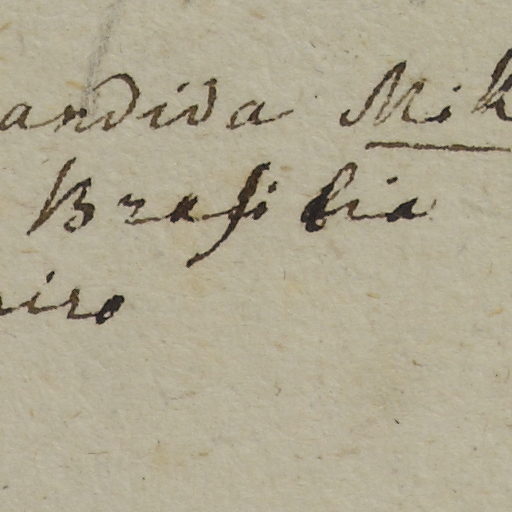 andida Mik
Brasilia
eiro